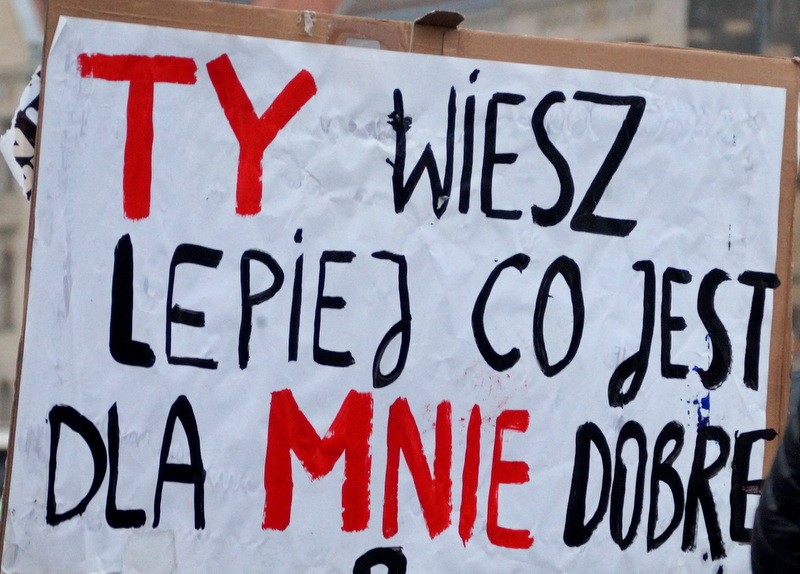 TY WIESZ
LEPIEJ CO JEST
DLA MNIE DOBRE
?